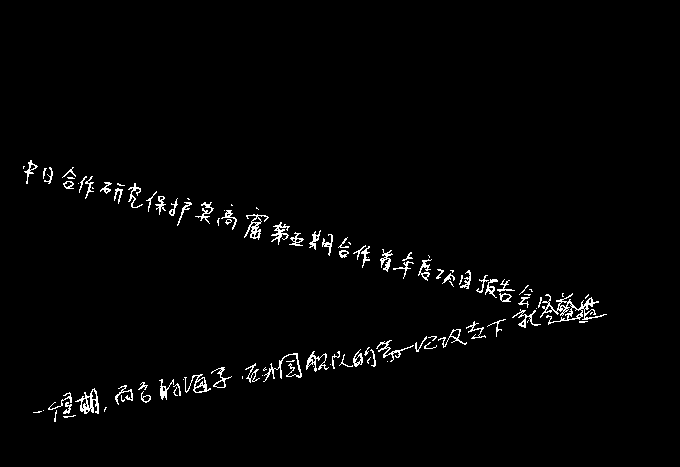 中日合作研究保护莫高窟第五期合作首年度项目报告会
一星期,而言的海子,在外国舰队的第一次攻击下就全